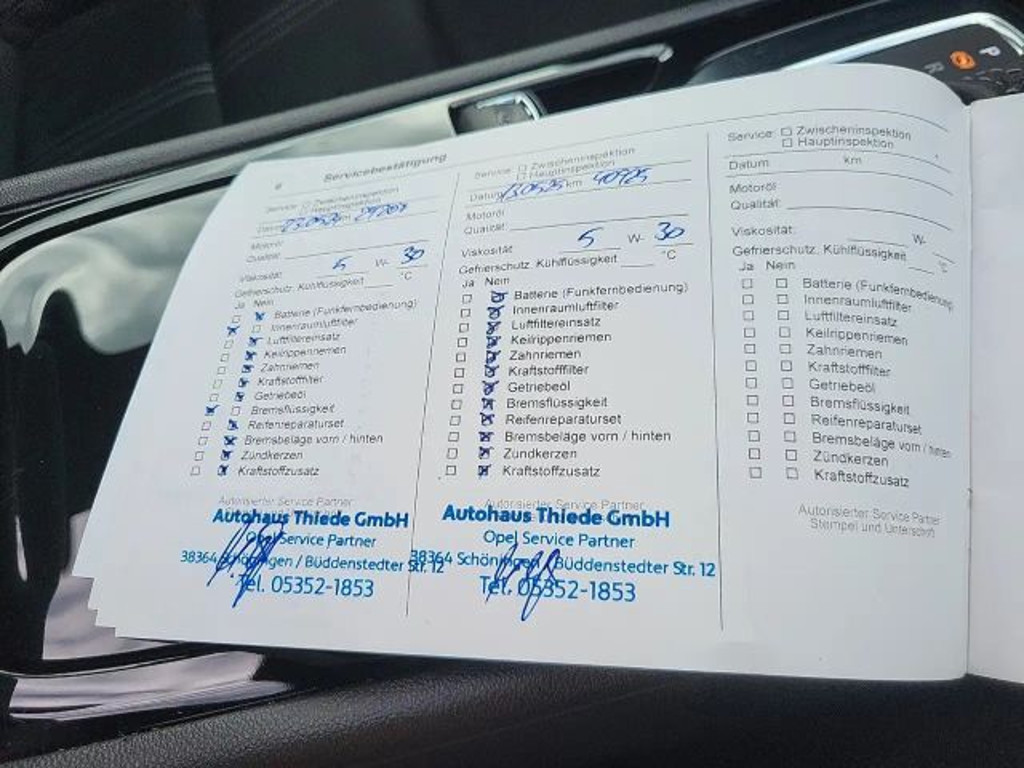 6 Servicebestätigung
Service: □ Zwischeninspektion
□ Hauptinspektion
Datum 23.05.24 km
Motoröl
Qualität:
Viskosität: 5 W- 30
Gefrierschutz, Kühlflüssigkeit °C
Ja Nein
□ ☒ Batterie (Funkfernbedienung)
☒ □ Innenraumluftfilter
□ ☒ Luftfiltereinsatz
□ ☒ Keilrippenriemen
□ ☒ Zahnriemen
□ ☒ Kraftstofffilter
□ ☒ Getriebeöl
☒ □ Bremsflüssigkeit
□ ☒ Reifenreparaturset
□ ☒ Bremsbeläge vorn / hinten
□ ☒ Zündkerzen
□ ☒ Kraftstoffzusatz
Autorisierter Service Partner
Autohaus Thiede GmbH
Opel Service Partner
38364 Schöningen / Büddenstedter Str. 12
Tel. 05352-1853
Service: □ Zwischeninspektion
□ Hauptinspektion
Datum 13.05.25 km 40925
Motoröl
Qualität:
Viskosität: 5 W- 30
Gefrierschutz, Kühlflüssigkeit °C
Ja Nein
□ ☒ Batterie (Funkfernbedienung)
□ ☒ Innenraumluftfilter
□ ☒ Luftfiltereinsatz
□ ☒ Keilrippenriemen
□ ☒ Zahnriemen
□ ☒ Kraftstofffilter
□ ☒ Getriebeöl
□ ☒ Bremsflüssigkeit
□ ☒ Reifenreparaturset
□ ☒ Bremsbeläge vorn / hinten
□ ☒ Zündkerzen
□ ☒ Kraftstoffzusatz
Autorisierter Service Partner
Autohaus Thiede GmbH
Opel Service Partner
38364 Schöningen / Büddenstedter Str. 12
Tel. 05352-1853
Service: □ Zwischeninspektion
□ Hauptinspektion
Datum km
Motoröl
Qualität:
Viskosität: W-
Gefrierschutz, Kühlflüssigkeit °C
Ja Nein
□ □ Batterie (Funkfernbedienung)
□ □ Innenraumluftfilter
□ □ Luftfiltereinsatz
□ □ Keilrippenriemen
□ □ Zahnriemen
□ □ Kraftstofffilter
□ □ Getriebeöl
□ □ Bremsflüssigkeit
□ □ Reifenreparaturset
□ □ Bremsbeläge vorn / hinten
□ □ Zündkerzen
□ □ Kraftstoffzusatz
Autorisierter Service Partner
Stempel und Unterschrift
P
R